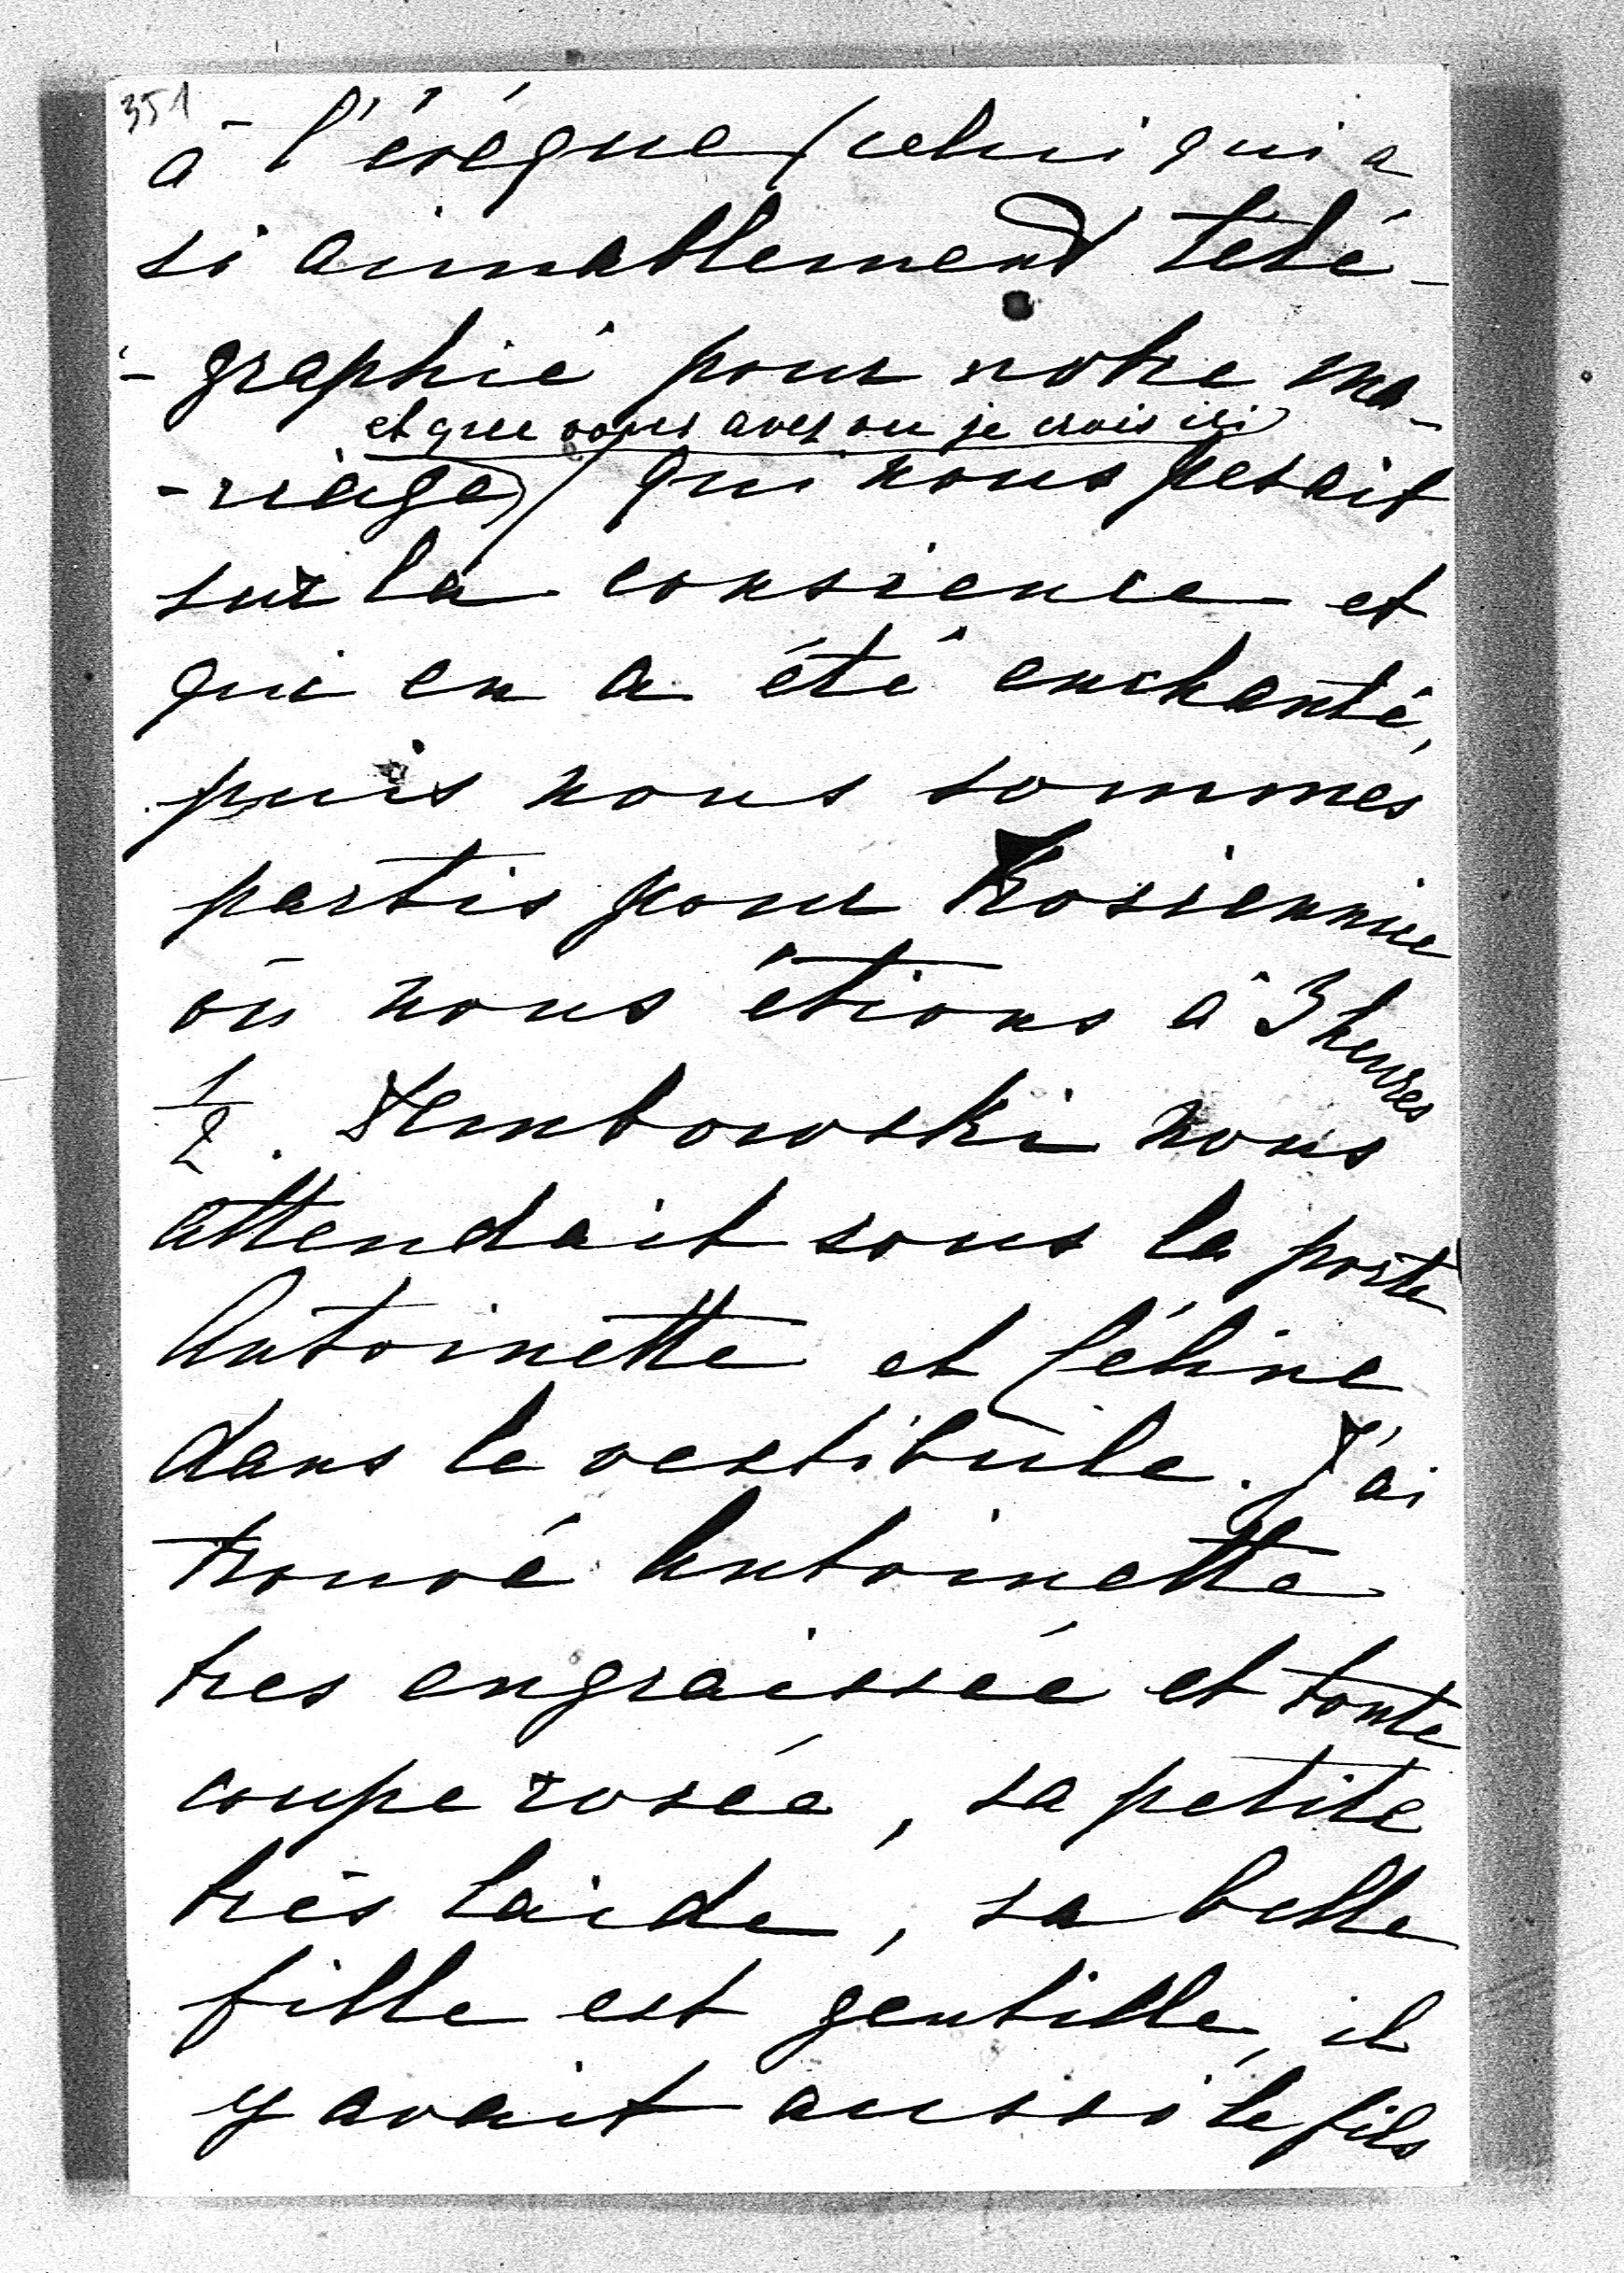 351
à l'évéque (celui qui a
si aimablement télé-
-graphié pour notre ma-
et que vous avez vu je crois ici)
-riage) qui nous pesait
sur la consience et
qui en a été enchanté,
puis nous sommes
partis pour Krosiennice
où nous étions à 3 heures
1/2. Dembowski nous
attendait sous la porte
Antoinette et Céline
dans le vestibule. J'ai
trouvé Antoinette
tres engraissée et toute
couperosée, sa petite
très laide, sa belle
fille est gentille, il
y avait aussi le fils